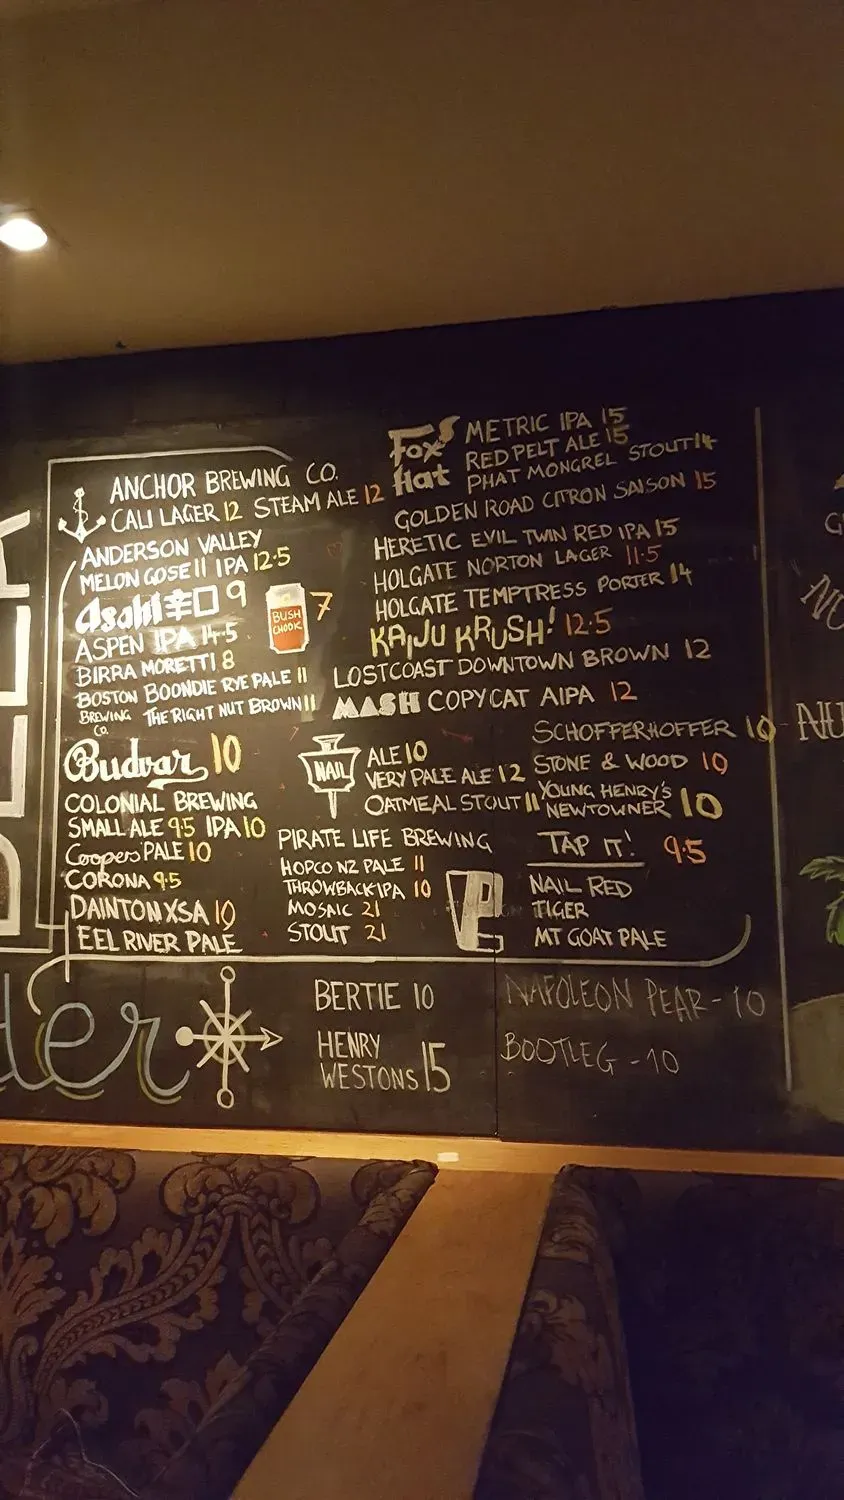 ANCHOR BREWING CO.
CALI LAGER 12 STEAM ALE 12
ANDERSON VALLEY
MELON GOSE 11 IPA 12.5
Asahi 辛口 9
BUSH
CHOOK
7
ASPEN IPA 14.5
BIRRA MORETTI 8
BOSTON BOONDIE RYE PALE 11
BREWING THE RIGHT NUT BROWN 11
CO.
Budvar 10
COLONIAL BREWING
SMALL ALE 9.5 IPA 10
Coopers PALE 10
CORONA 9.5
DAINTON XSA 10
EEL RIVER PALE
Fox
Hat
METRIC IPA 15
RED PELT ALE 15
PHAT MONGREL STOUT 14
GOLDEN ROAD CITRON SAISON 15
HERETIC EVIL TWIN RED IPA 15
HOLGATE NORTON LAGER 11.5
HOLGATE TEMPTRESS PORTER 14
KAIJU KRUSH! 12.5
LOSTCOAST DOWNTOWN BROWN 12
MASH COPYCAT AIPA 12
NAIL
ALE 10
VERY PALE ALE 12
OATMEAL STOUT 11
PIRATE LIFE BREWING
HOPCO NZ PALE 11
THROWBACK IPA 10
MOSAIC 21
STOUT 21
SCHOFFERHOFFER 10
STONE & WOOD 10
YOUNG HENRY'S
NEWTOWNER 10
TAP IT! 9.5
NAIL RED
TIGER
MT GOAT PALE
der
BERTIE 10
HENRY
WESTONS 15
NAPOLEON PEAR - 10
BOOTLEG - 10